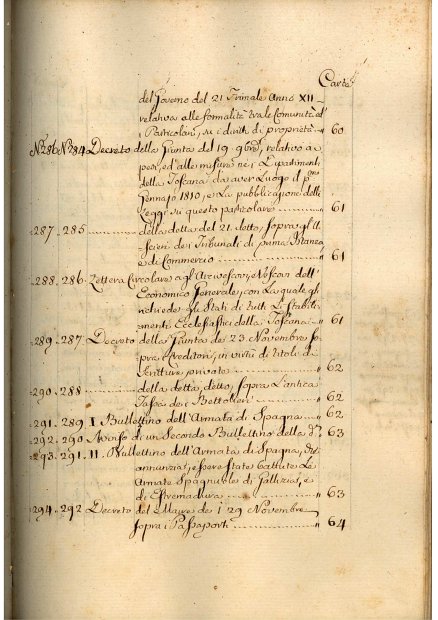 Carte
del Governo del 21 Frimale Anno XII
relativa alle formalità tra le Comunità, ed
i Particolari, su i diritti di proprietà " 60
N.286. N.284. Decreto della Giunta del 19 9bre, relativo a
pesi, ed alle misure ne i Dipartimenti
della Toscana da aver Luogo il pmo
Gennajo 1810, e La pubblicazione delle
Leggi su questo particolare " 61
287. 285. della detta del 21 detto, sopra gl'U
scieri de i Tribunali di prima Istanza
e di Commercio " 61
288. 286. Lettera Circolare a gl'Arcivescovi, e Vescovi dell'
Economico Generale, con La quale gli
richiede gli Stati di tutti gli Stabili
menti Ecclesiastici della Toscana " 61
289. 287. Decreto della Giunta de i 23 Novembre So
pra i Creditori, in virtù di titolo di
Scritture private " 62
290. 288. della detta, detto, sopra L'antica
Tassa de i Bettolieri " 62
291. 289. I. Bullettino dell'Armata di Spagna " 62
292. 290. Avviso di un Secondo Bullettino della " 63
293. 291. II. Bullettino dell'Armata di Spagna,
annunzia, essere State battute Le
Armate Spagnuole di Gallizia, e
di Estremadura " 63
294. 292. Decreto del Maire de i 29 Novembre
sopra i Passaporti " 64